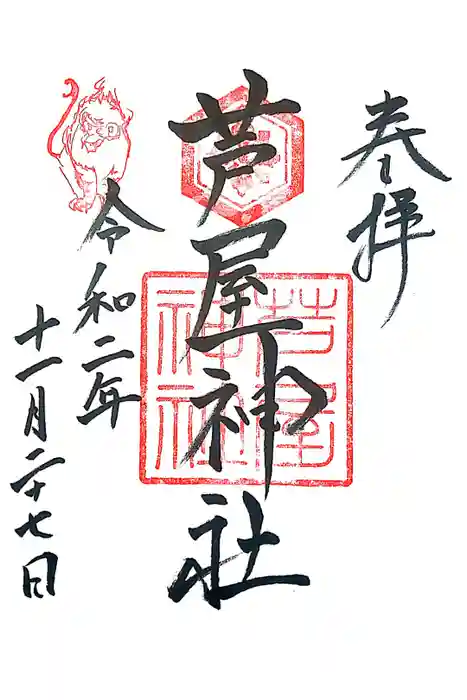 奉拝
芦屋神社
芦屋
神社
令和二年
十一月二十七日